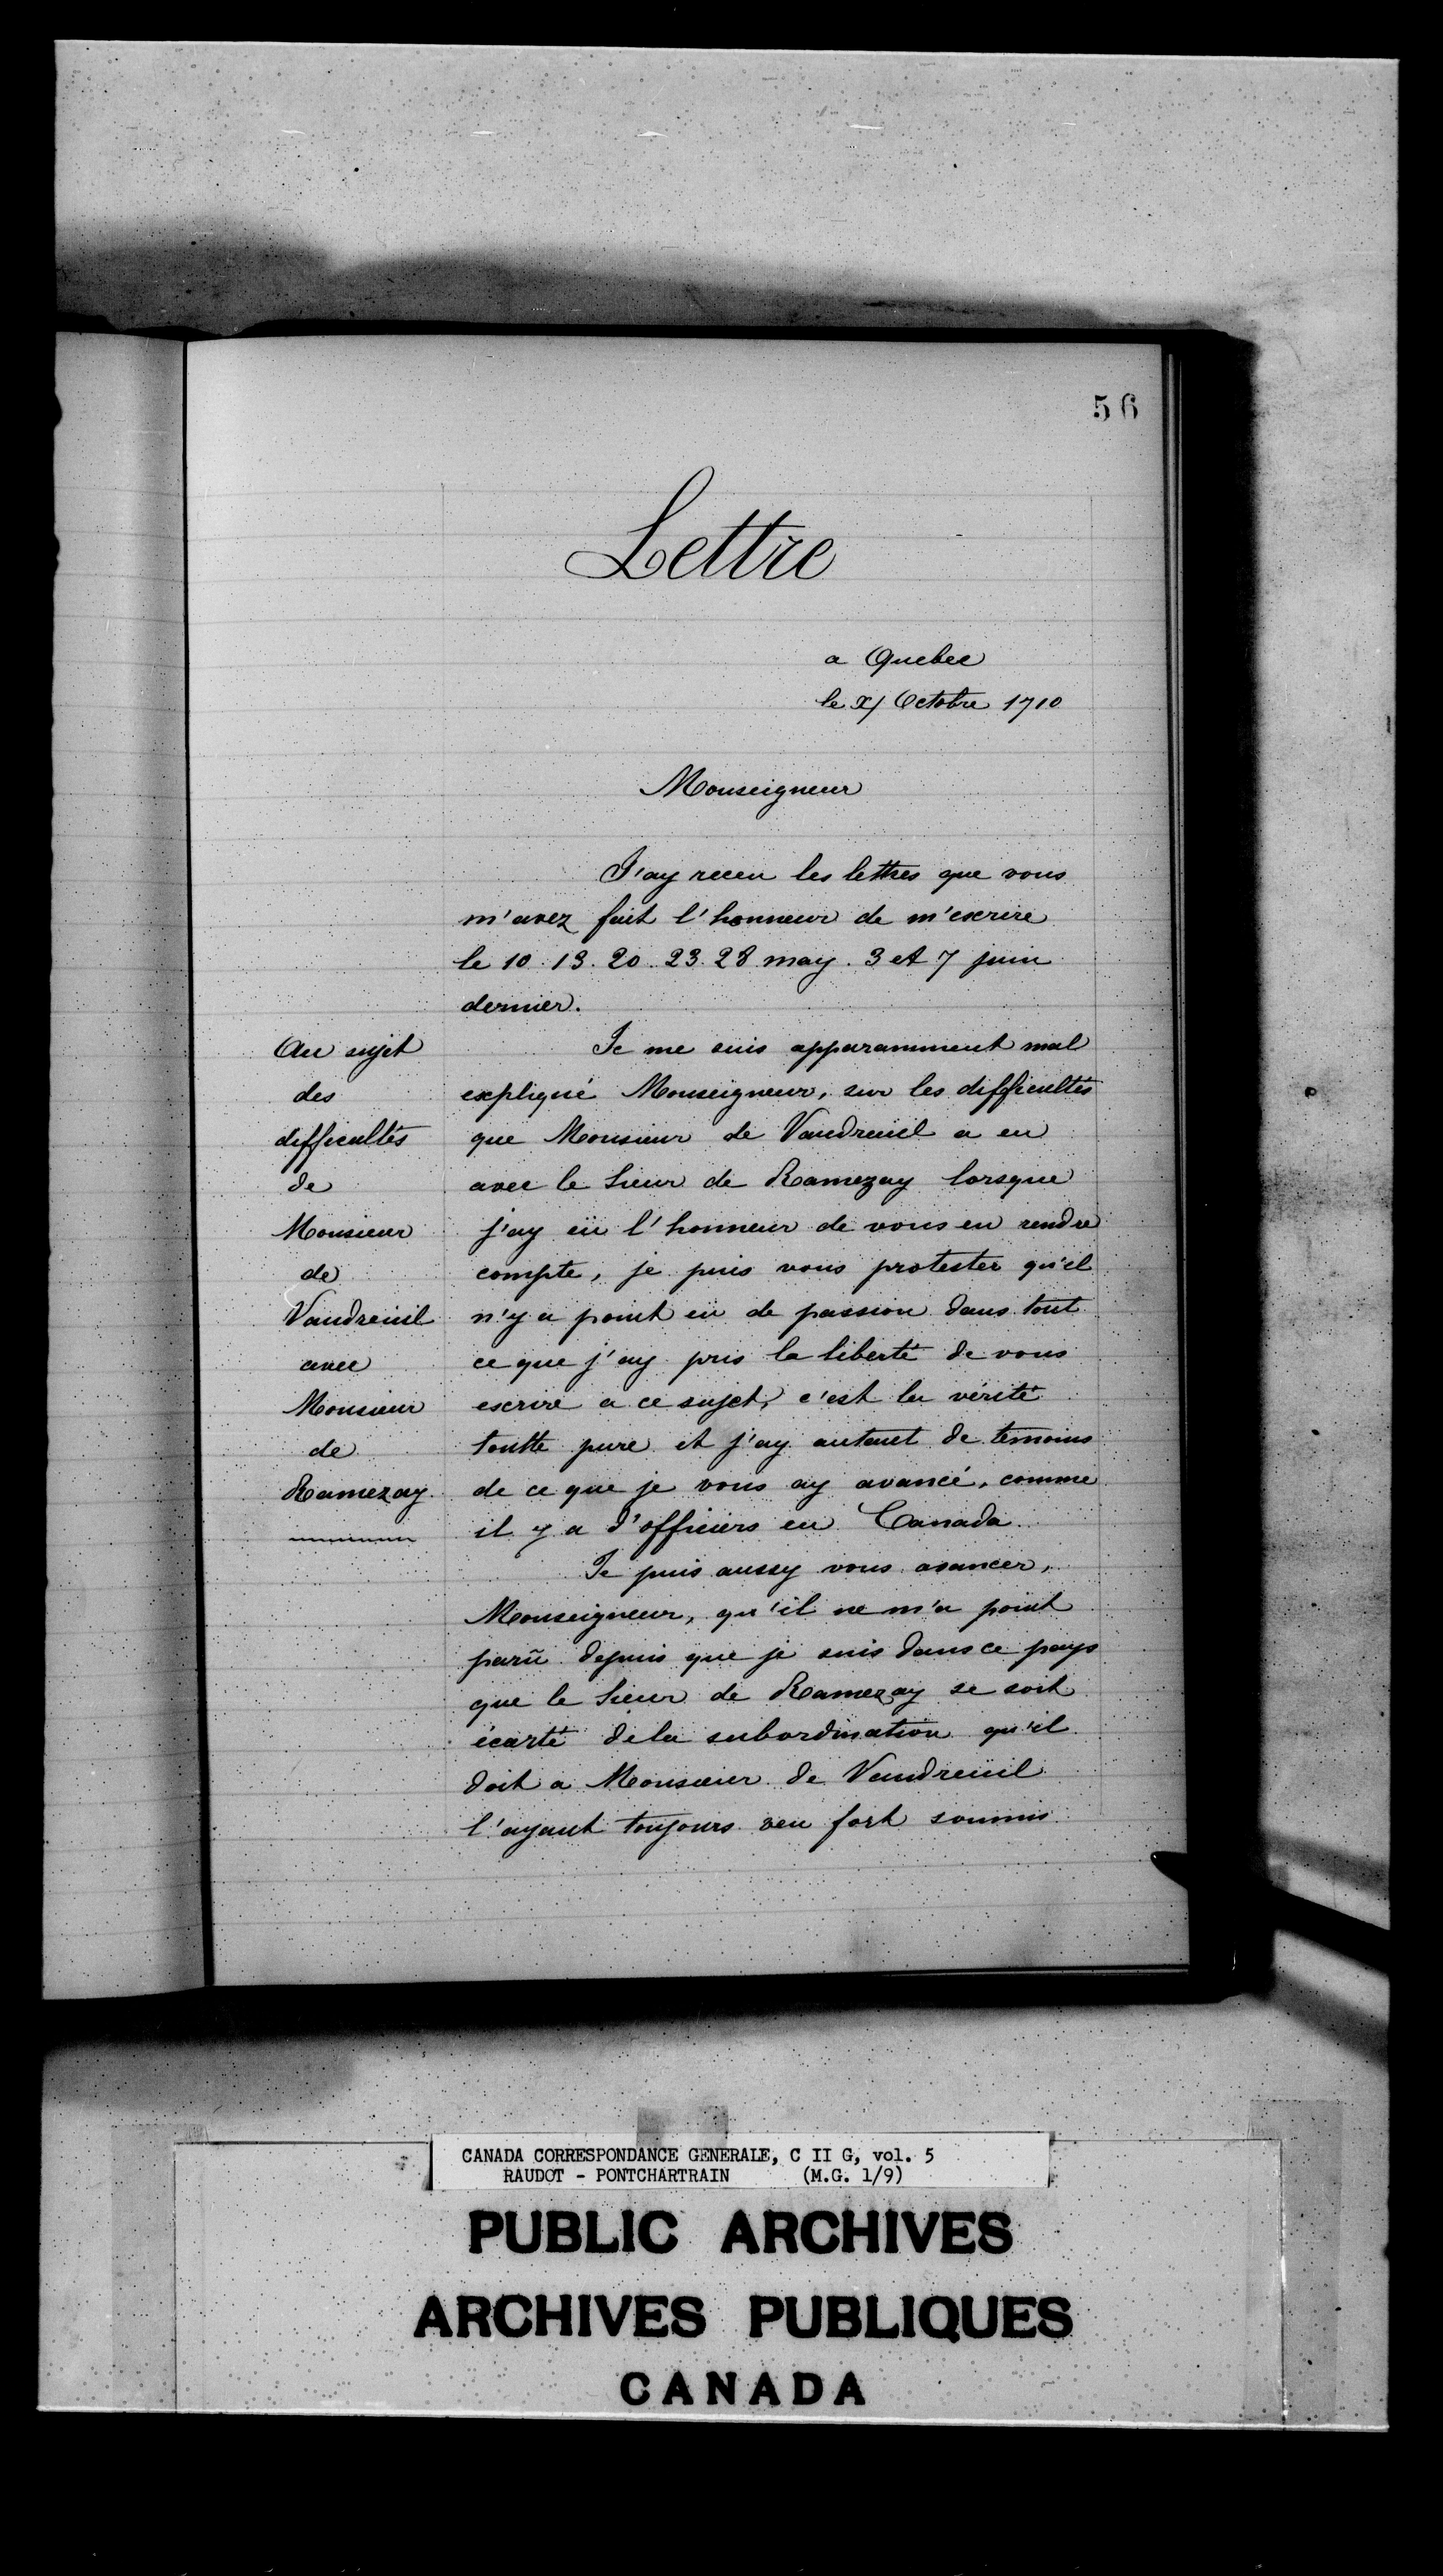 56
Lettre
a Quebec
le x/ Octobre 1710
Monseigneur
J'ay receu les lettres que vous
m'avez fait l'honneur de m'escrire
le 10. 13. 20. 23. 28 may. 3 et 7 juin
dernier.
Au sujet
des
difficultés
de
Monsieur
de
Vaudreuil
avec
Monsieur
de
Ramezay.
Je me suis apparamment mal
expliqué Monseigneur, sur les difficultés
que Monsieur de Vaudreuil a eu
avec le Sieur de Ramezay lorsque
j'ay eü l'honneur de vous en rendre
compte, je puis vous protester qu'il
n'y a point eü de passion dans tout
ce que j'ay pris la liberté de vous
escrire a ce sujet, c'est la vérité
toutte pure et j'ay autant de temoins
de ce que je vous ay avancé, comme
il y a d'officiers en Canada.
Je puis aussy vous avancer,
Monseigneur, qu'il ne m'a point
parü depuis que je suis dans ce pays
que le Sieur de Ramezay se soit
écarté de la subordination qu'il
doit a Monsieur de Vaudreüil
l'ayant toujours veu fort soumis
CANADA CORRESPONDANCE GENERALE, C II G, vol. 5
RAUDOT - PONTCHARTRAIN (M.G. 1/9)
PUBLIC ARCHIVES
ARCHIVES PUBLIQUES
CANADA